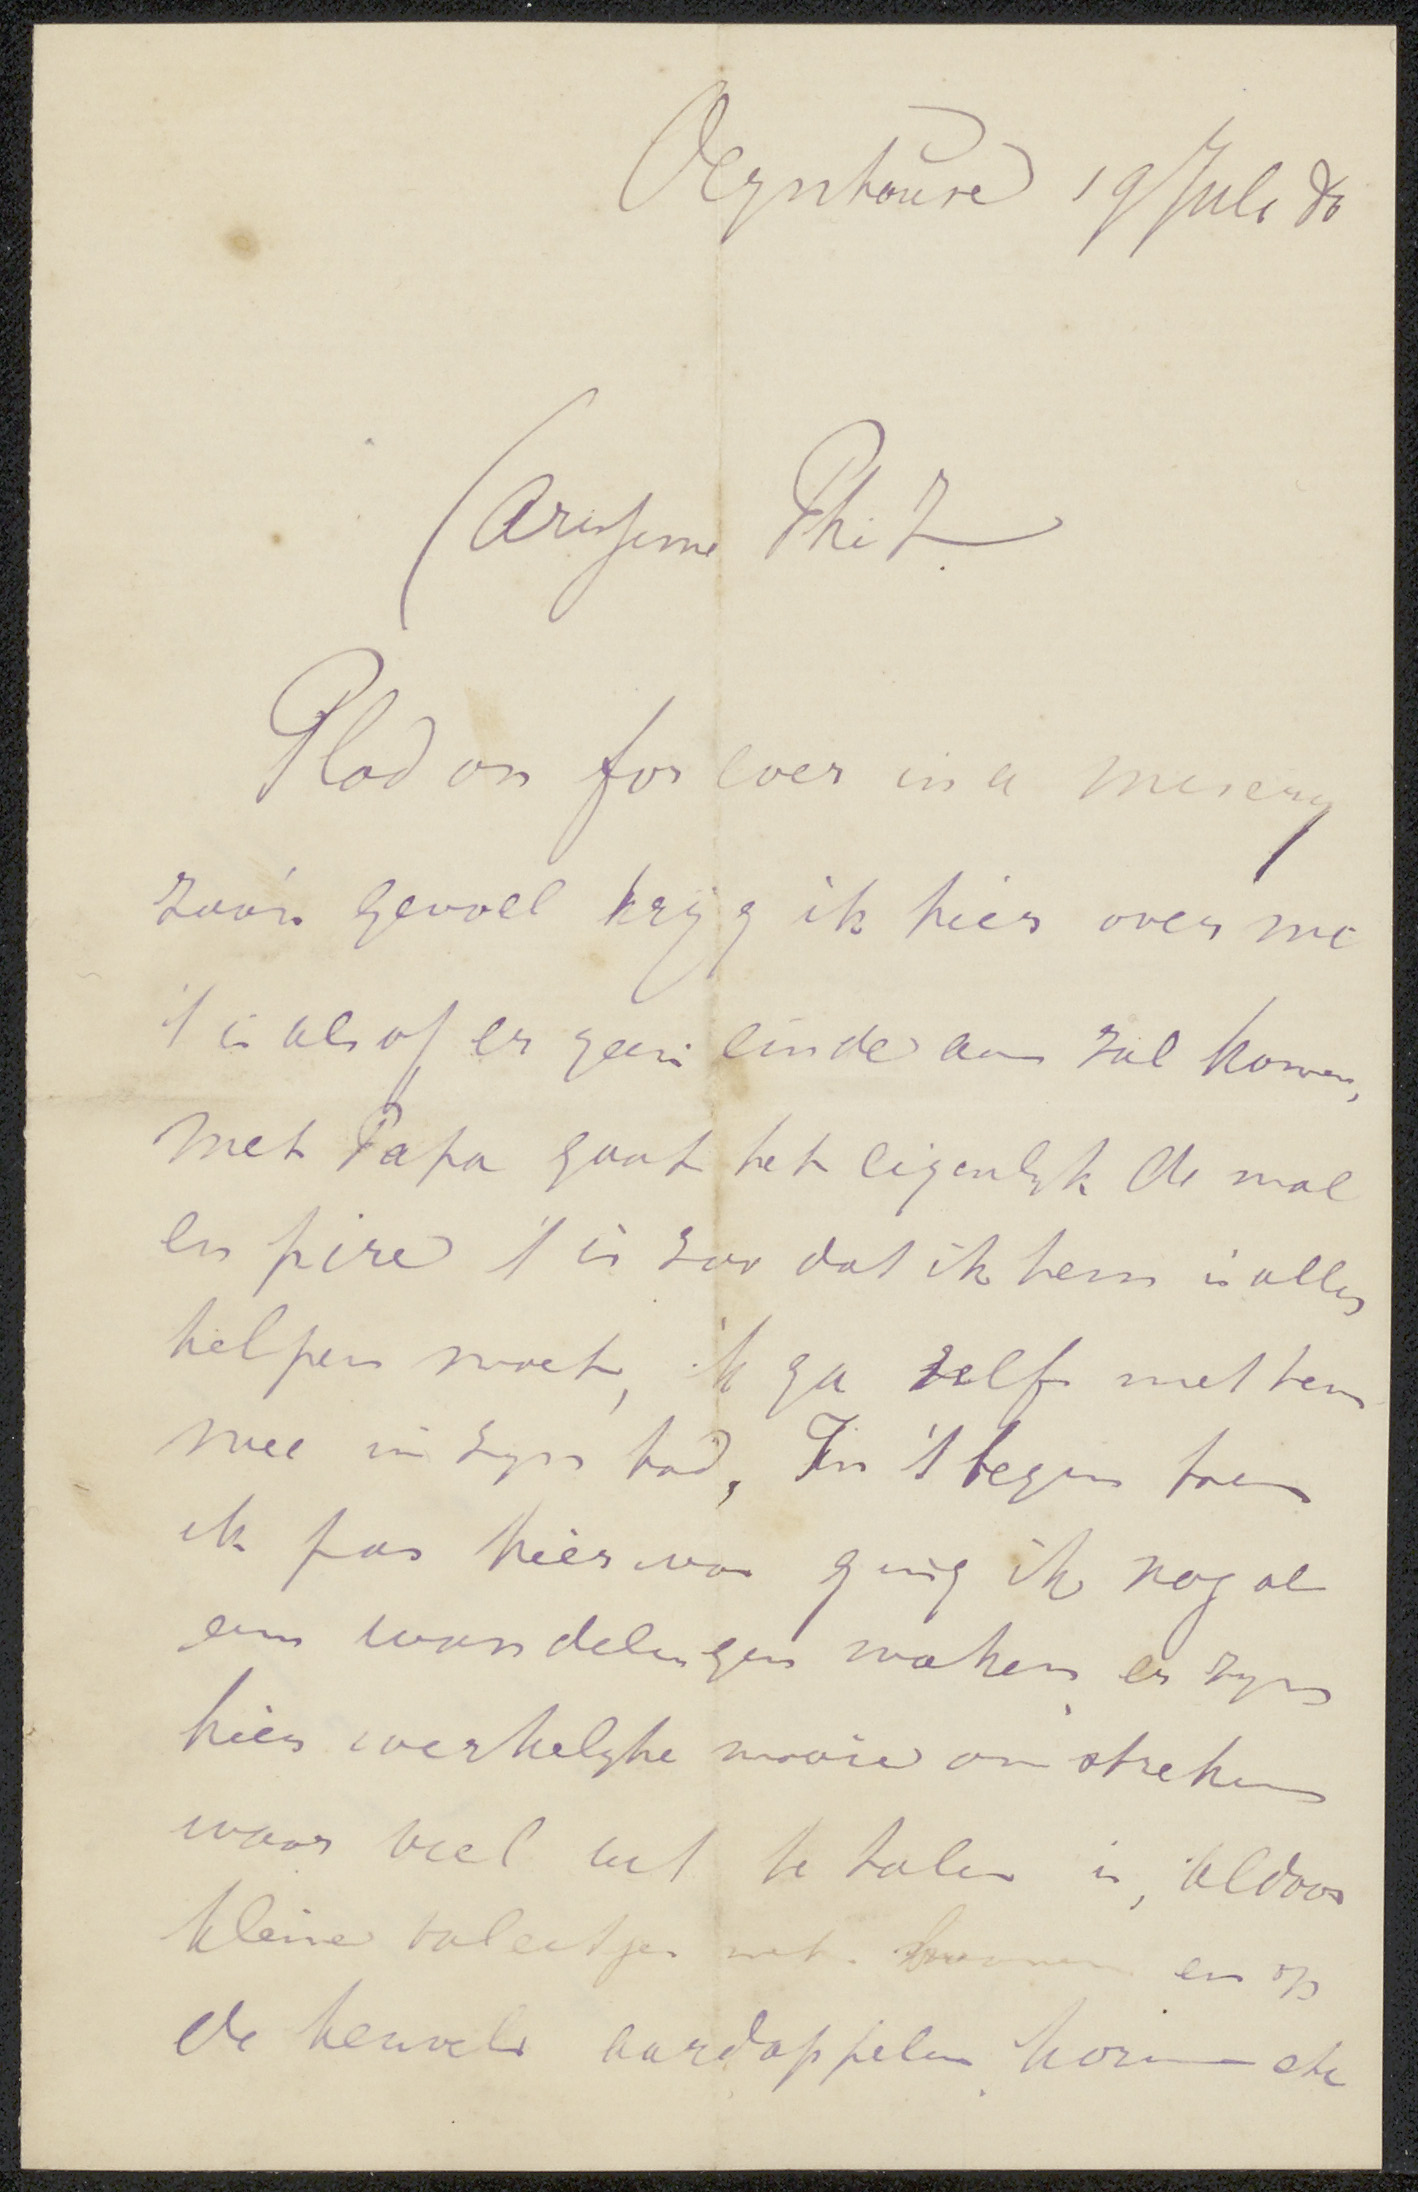 Oeynhause 19 Juli 86
Carissime Phi Z.
Plod on for ever in a misery
zoo'n gevoel kryg ik hier over me
't is alsof er geen einde aan zal komen,
met Papa gaat het eigenlyk de mal
en pire 't is zoo dat ik hem in alles
helpen moet, ik ga zelfs met hem
mee in zyn bad, In 't begin toen
ik pas hier was ging ik nog al
eens wandelingen maken, er zyn
hier werkelyke mooie omstreken
waar veel uit te halen is, aldoor
kleine valeitjes met boomen en op
de heuvels aardappelen, koren etc